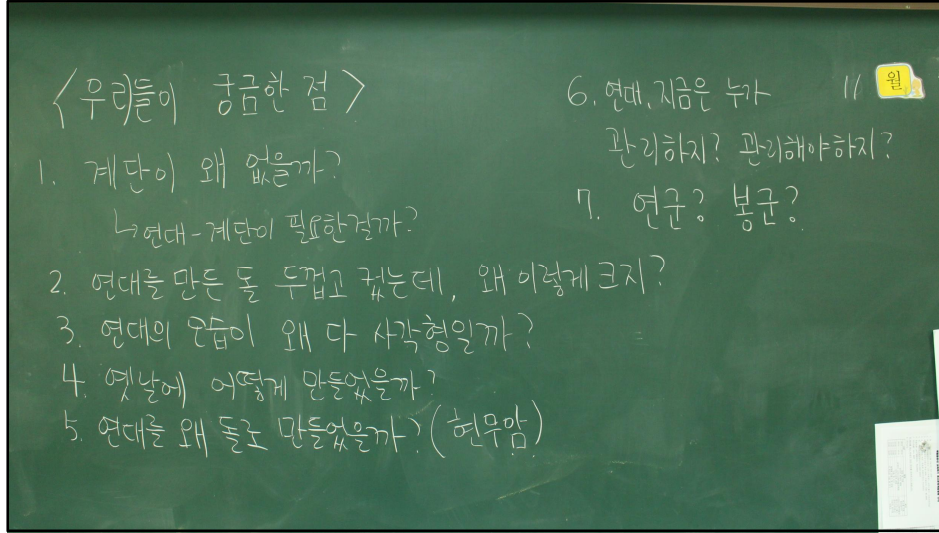 <우리들이 궁금한 점>
1. 계단이 왜 없을까?
↳연대-계단이 필요한걸까?
2. 연대를 만든 돌 두껍고 컸는데, 왜 이렇게 크지?
3. 연대의 모습이 왜 다 사각형일까?
4. 옛날에 어떻게 만들었을까?
5. 연대를 왜 돌로 만들었을까? (현무암)
6. 연대, 지금은 누가
관리하지? 관리해야하지?
7. 연군? 봉군?
11 월